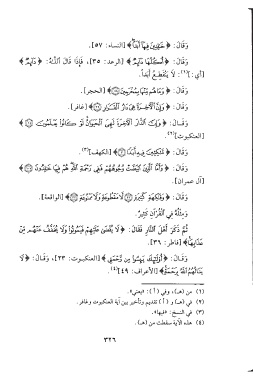 وَقَالَ: ﴿خَٰلِدِينَ فِيهَآ أَبَدًا﴾ [النساء: ٥٧].
وَقَالَ: ﴿أُكُلُهَا دَآئِمٌ﴾ [الرعد: ٣٥]، فَإِذَا قَالَ اللهُ: ﴿دَآئِمٌ﴾
[أي:](١) لَا يَنْقَطِعُ أَبَداً.
وَقَالَ: ﴿وَمَا هُم مِّنْهَا بِمُخْرَجِينَ﴾ [الحجر].
وَقَالَ: ﴿وَإِنَّ ٱلْأَخِرَةَ هِىَ دَارُ ٱلْقَرَارِ﴾ [غافر].
وَقَالَ: ﴿وَإِنَّ ٱلدَّارَ ٱلْأَخِرَةَ لَهِىَ ٱلْحَيَوَانُ لَوْ كَانُوا۟ يَعْلَمُونَ﴾
[العنكبوت](٢).
وَقَالَ: ﴿مَّٰكِثِينَ فِيهِ أَبَدًا﴾ [الكهف](٣).
وَقَالَ: ﴿وَأَمَّا ٱلَّذِينَ ٱبْيَضَّتْ وُجُوهُهُمْ فَفِى رَحْمَةِ ٱللَّهِ هُمْ فِيهَا خَٰلِدُونَ﴾
[آل عمران].
وَقَالَ: ﴿وَفَٰكِهَةٍ كَثِيرَةٍ لَّا مَقْطُوعَةٍ وَلَا مَمْنُوعَةٍ﴾ [الواقعة].
وَمِثْلُهُ فِي القُرْآنِ كَثِيرٌ.
ثُمَّ ذَكَرَ أَهْلَ النَّارِ فَقَالَ: ﴿لَا يُقْضَىٰ عَلَيْهِمْ فَيَمُوتُوا۟ وَلَا يُخَفَّفُ عَنْهُم مِّنْ
عَذَابِهَا﴾ [فاطر: ٣٦].
وَقَالَ: ﴿أُو۟لَٰٓئِكَ يَئِسُوا۟ مِن رَّحْمَتِى﴾ [العنكبوت: ٢٣]، وَقَالَ: ﴿لَا
يَنَالُهُمُ ٱللَّهُ بِرَحْمَةٍ﴾ [الأعراف: ٤٩](٤).
(١) من (هـ)، وفي (أ): «يعني».
(٢) في (هـ) و (أ) تقديم وتأخير بين آية العنكبوت وغافر.
(٣) في النسخ: «فيها».
(٤) هذه الآية سقطت من (هـ).
٣٢٦